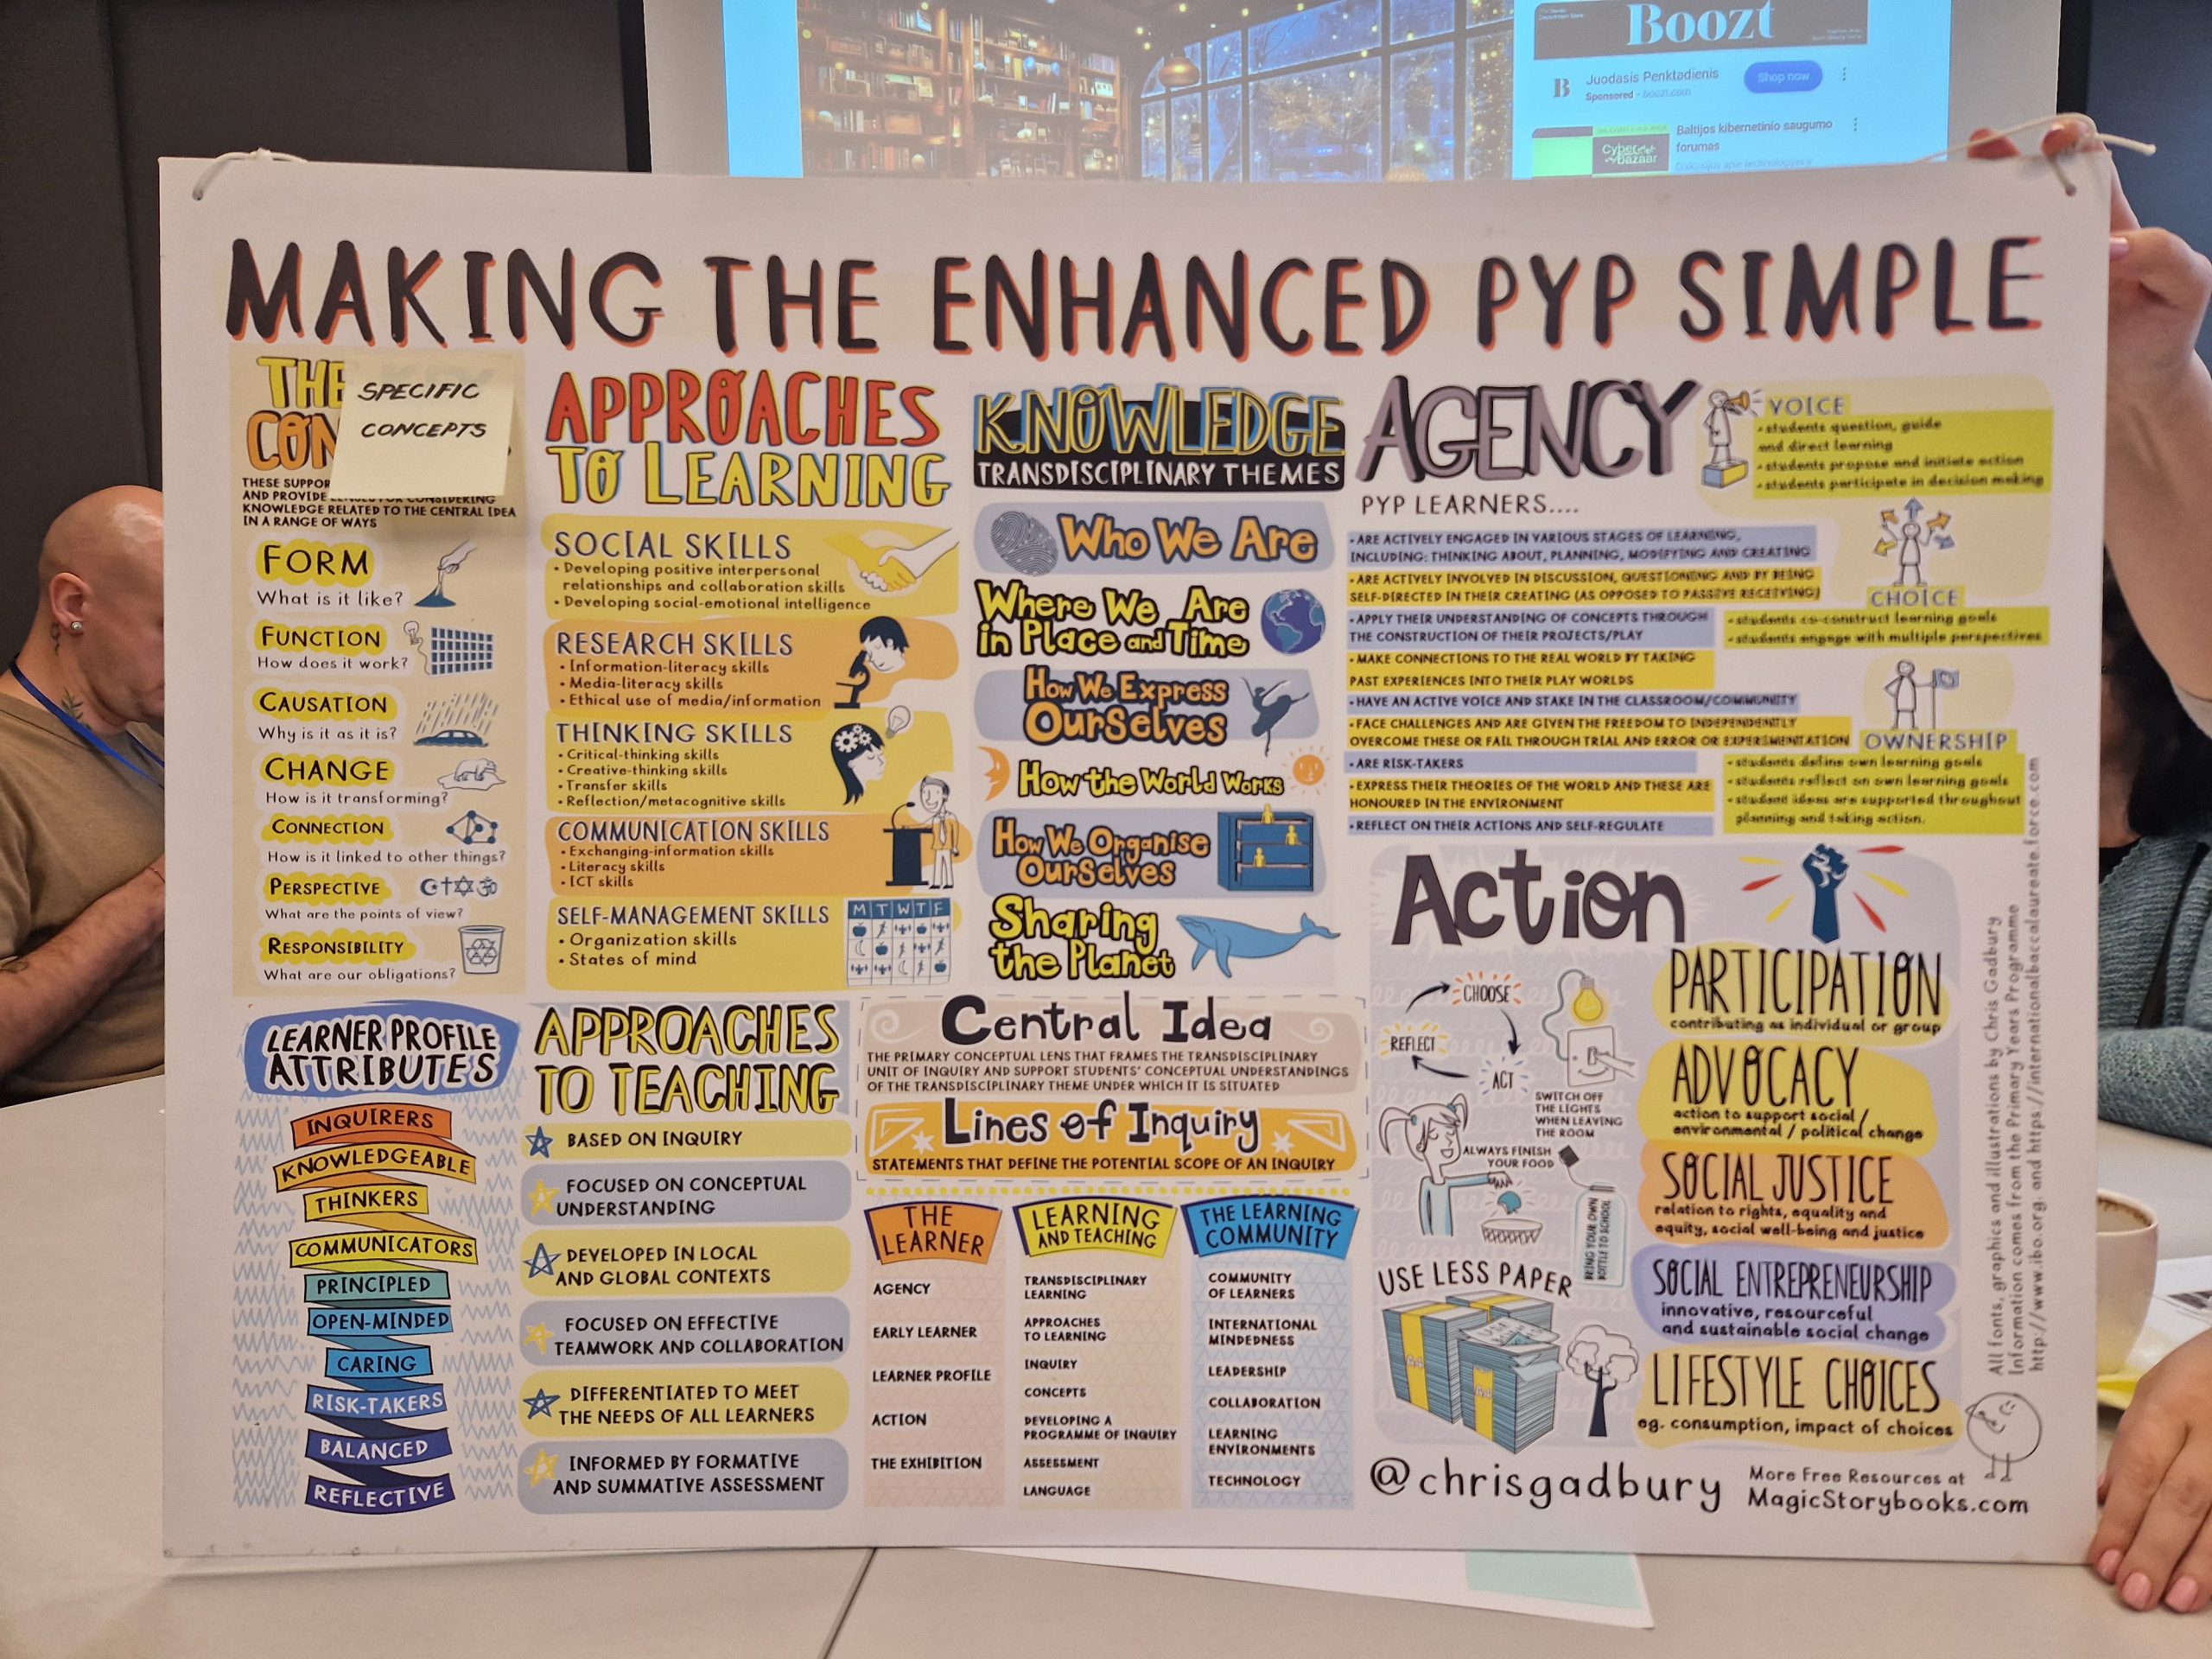 Boozt
Juodasis Penktadienis
Sponsored · boozt.com
Shop now
Baltijos kibernetinio saugumo
forumas
Cyber
bazaar
MAKING THE ENHANCED PYP SIMPLE
THE
CON
SPECIFIC
CONCEPTS
THESE SUPPOR
AND PROVIDE LENSES FOR CONSIDERING
KNOWLEDGE RELATED TO THE CENTRAL IDEA
IN A RANGE OF WAYS
FORM
What is it like?
FUNCTION
How does it work?
CAUSATION
Why is it as it is?
CHANGE
How is it transforming?
CONNECTION
How is it linked to other things?
PERSPECTIVE
What are the points of view?
RESPONSIBILITY
What are our obligations?
APPROACHES
TO LEARNING
SOCIAL SKILLS
• Developing positive interpersonal
relationships and collaboration skills
• Developing social-emotional intelligence
RESEARCH SKILLS
• Information-literacy skills
• Media-literacy skills
• Ethical use of media/information
THINKING SKILLS
• Critical-thinking skills
• Creative-thinking skills
• Transfer skills
• Reflection/metacognitive skills
COMMUNICATION SKILLS
• Exchanging-information skills
• Literacy skills
• ICT skills
SELF-MANAGEMENT SKILLS
• Organization skills
• States of mind
M T W T F
KNOWLEDGE
TRANSDISCIPLINARY THEMES
Who We Are
Where We Are
in Place and Time
How We Express
Ourselves
How the World Works
How We Organise
Ourselves
Sharing
the Planet
AGENCY
PYP LEARNERS....
• ARE ACTIVELY ENGAGED IN VARIOUS STAGES OF LEARNING,
INCLUDING: THINKING ABOUT, PLANNING, MODIFYING AND CREATING
• ARE ACTIVELY INVOLVED IN DISCUSSION, QUESTIONING AND BY BEING
SELF-DIRECTED IN THEIR CREATING (AS OPPOSED TO PASSIVE RECEIVING)
• APPLY THEIR UNDERSTANDING OF CONCEPTS THROUGH
THE CONSTRUCTION OF THEIR PROJECTS/PLAY
• MAKE CONNECTIONS TO THE REAL WORLD BY TAKING
PAST EXPERIENCES INTO THEIR PLAY WORLDS
• HAVE AN ACTIVE VOICE AND STAKE IN THE CLASSROOM/COMMUNITY
• FACE CHALLENGES AND ARE GIVEN THE FREEDOM TO INDEPENDENTLY
OVERCOME THESE OR FAIL THROUGH TRIAL AND ERROR OR EXPERIMENTATION
• ARE RISK-TAKERS
• EXPRESS THEIR THEORIES OF THE WORLD AND THESE ARE
HONOURED IN THE ENVIRONMENT
• REFLECT ON THEIR ACTIONS AND SELF-REGULATE
VOICE
• students question, guide
and direct learning
• students propose and initiate action
• students participate in decision making
CHOICE
• students co-construct learning goals
• students engage with multiple perspectives
OWNERSHIP
• students define own learning goals
• students reflect on own learning goals
• student ideas are supported throughout
planning and taking action.
LEARNER PROFILE
ATTRIBUTES
INQUIRERS
KNOWLEDGEABLE
THINKERS
COMMUNICATORS
PRINCIPLED
OPEN-MINDED
CARING
RISK-TAKERS
BALANCED
REFLECTIVE
APPROACHES
TO TEACHING
BASED ON INQUIRY
FOCUSED ON CONCEPTUAL
UNDERSTANDING
DEVELOPED IN LOCAL
AND GLOBAL CONTEXTS
FOCUSED ON EFFECTIVE
TEAMWORK AND COLLABORATION
DIFFERENTIATED TO MEET
THE NEEDS OF ALL LEARNERS
INFORMED BY FORMATIVE
AND SUMMATIVE ASSESSMENT
Central Idea
THE PRIMARY CONCEPTUAL LENS THAT FRAMES THE TRANSDISCIPLINARY
UNIT OF INQUIRY AND SUPPORT STUDENTS' CONCEPTUAL UNDERSTANDINGS
OF THE TRANSDISCIPLINARY THEME UNDER WHICH IT IS SITUATED
Lines of Inquiry
STATEMENTS THAT DEFINE THE POTENTIAL SCOPE OF AN INQUIRY
THE
LEARNER
AGENCY
EARLY LEARNER
LEARNER PROFILE
ACTION
THE EXHIBITION
LEARNING
AND TEACHING
TRANSDISCIPLINARY
LEARNING
APPROACHES
TO LEARNING
INQUIRY
CONCEPTS
DEVELOPING A
PROGRAMME OF INQUIRY
ASSESSMENT
LANGUAGE
THE LEARNING
COMMUNITY
COMMUNITY
OF LEARNERS
INTERNATIONAL
MINDEDNESS
LEADERSHIP
COLLABORATION
LEARNING
ENVIRONMENTS
TECHNOLOGY
Action
CHOOSE
ACT
REFLECT
SWITCH OFF
THE LIGHTS
WHEN LEAVING
THE ROOM
ALWAYS FINISH
YOUR FOOD
BRING YOUR OWN
BOTTLE TO SCHOOL
USE LESS PAPER
A4
A4
PARTICIPATION
contributing as individual or group
ADVOCACY
action to support social /
environmental / political change
SOCIAL JUSTICE
relation to rights, equality and
equity, social well-being and justice
SOCIAL ENTREPRENEURSHIP
innovative, resourceful
and sustainable social change
LIFESTYLE CHOICES
eg. consumption, impact of choices
@chrisgadbury
More Free Resources at
MagicStorybooks.com
All fonts, graphics and illustrations by Chris Gadbury
Information comes from the Primary Years Programme
http://www.ibo.org. and https://internationalbaccalaureate.force.com